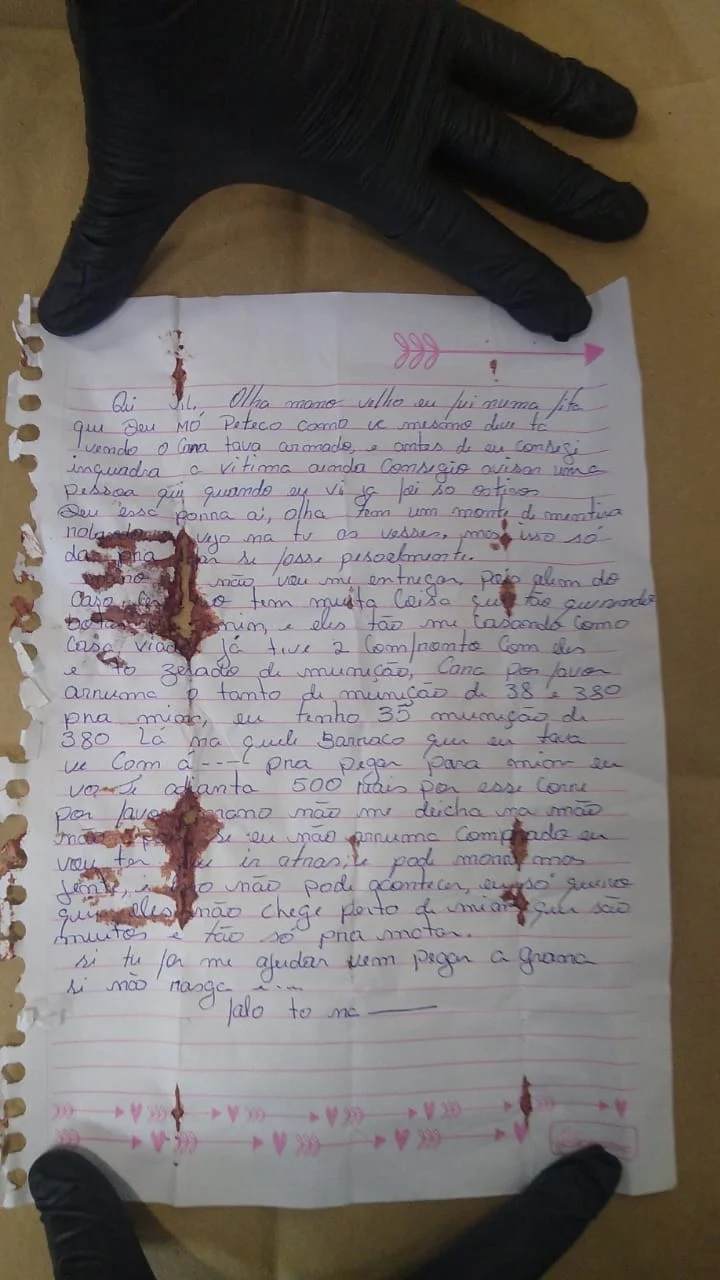 Oi Olha mano velho eu fui numa fita
que Deu MÓ Peteco como vc mesmo deve tá
vendo o Cana tava armado, e antes de eu consegi
inquadra a vitima ainda Consegio avisar uma
pessoa qui quando eu vi ja foi so ostivos
Deu essa porra ai, olha tem um monte de mentira
vejo na tv as vesses, mas isso só
da pra se fosse pesoalmente.
mano não vou me entregar, pois alem do
Caso tem muita Coisa que tão querendo
mim, e eles tão me Casando como
Casa viado já tive 2 Comfronto Com eles
e to zerado de munição, Cana por favor
arruma o tanto de munição de 38 e 380
pra mior, eu tenho 35 munição de
380 Lá na quele Barraco que eu tava
ve Com a ---- pra pegar para mior eu
vo Te adianta 500 reais por esse Corre
por favor mano não me deicha na mão
não se eu não arruma Comprada eu
vou ter que ir atras, e pode morre mas
jente, e não pode acontecer, eu só quero
que eles não chege perto de mior, que são
muitos e tão só pra matar.
si tu for me ajudar vem pegar a grana
si não rasga
falo to na ——